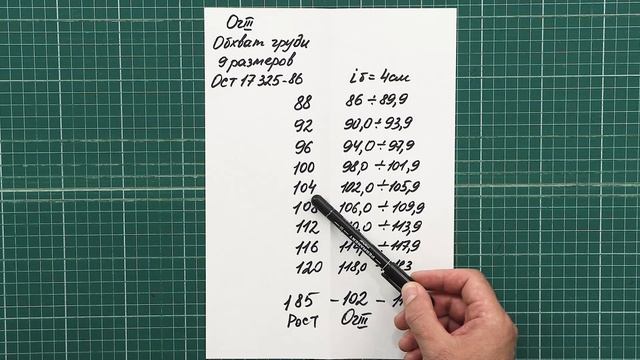 ОгIII
Обхват груди
9 размеров
Ост 17325-86 iб = 4см
88 86 ÷ 89,9
92 90,0 ÷ 93,9
96 94,0 ÷ 97,9
100 98,0 ÷ 101,9
104 102,0 ÷ 105,9
108 106,0 ÷ 109,9
112 ÷ 113,9
116 ÷ 117,9
120 118,0
185 - 102 -
Рост ОгIII